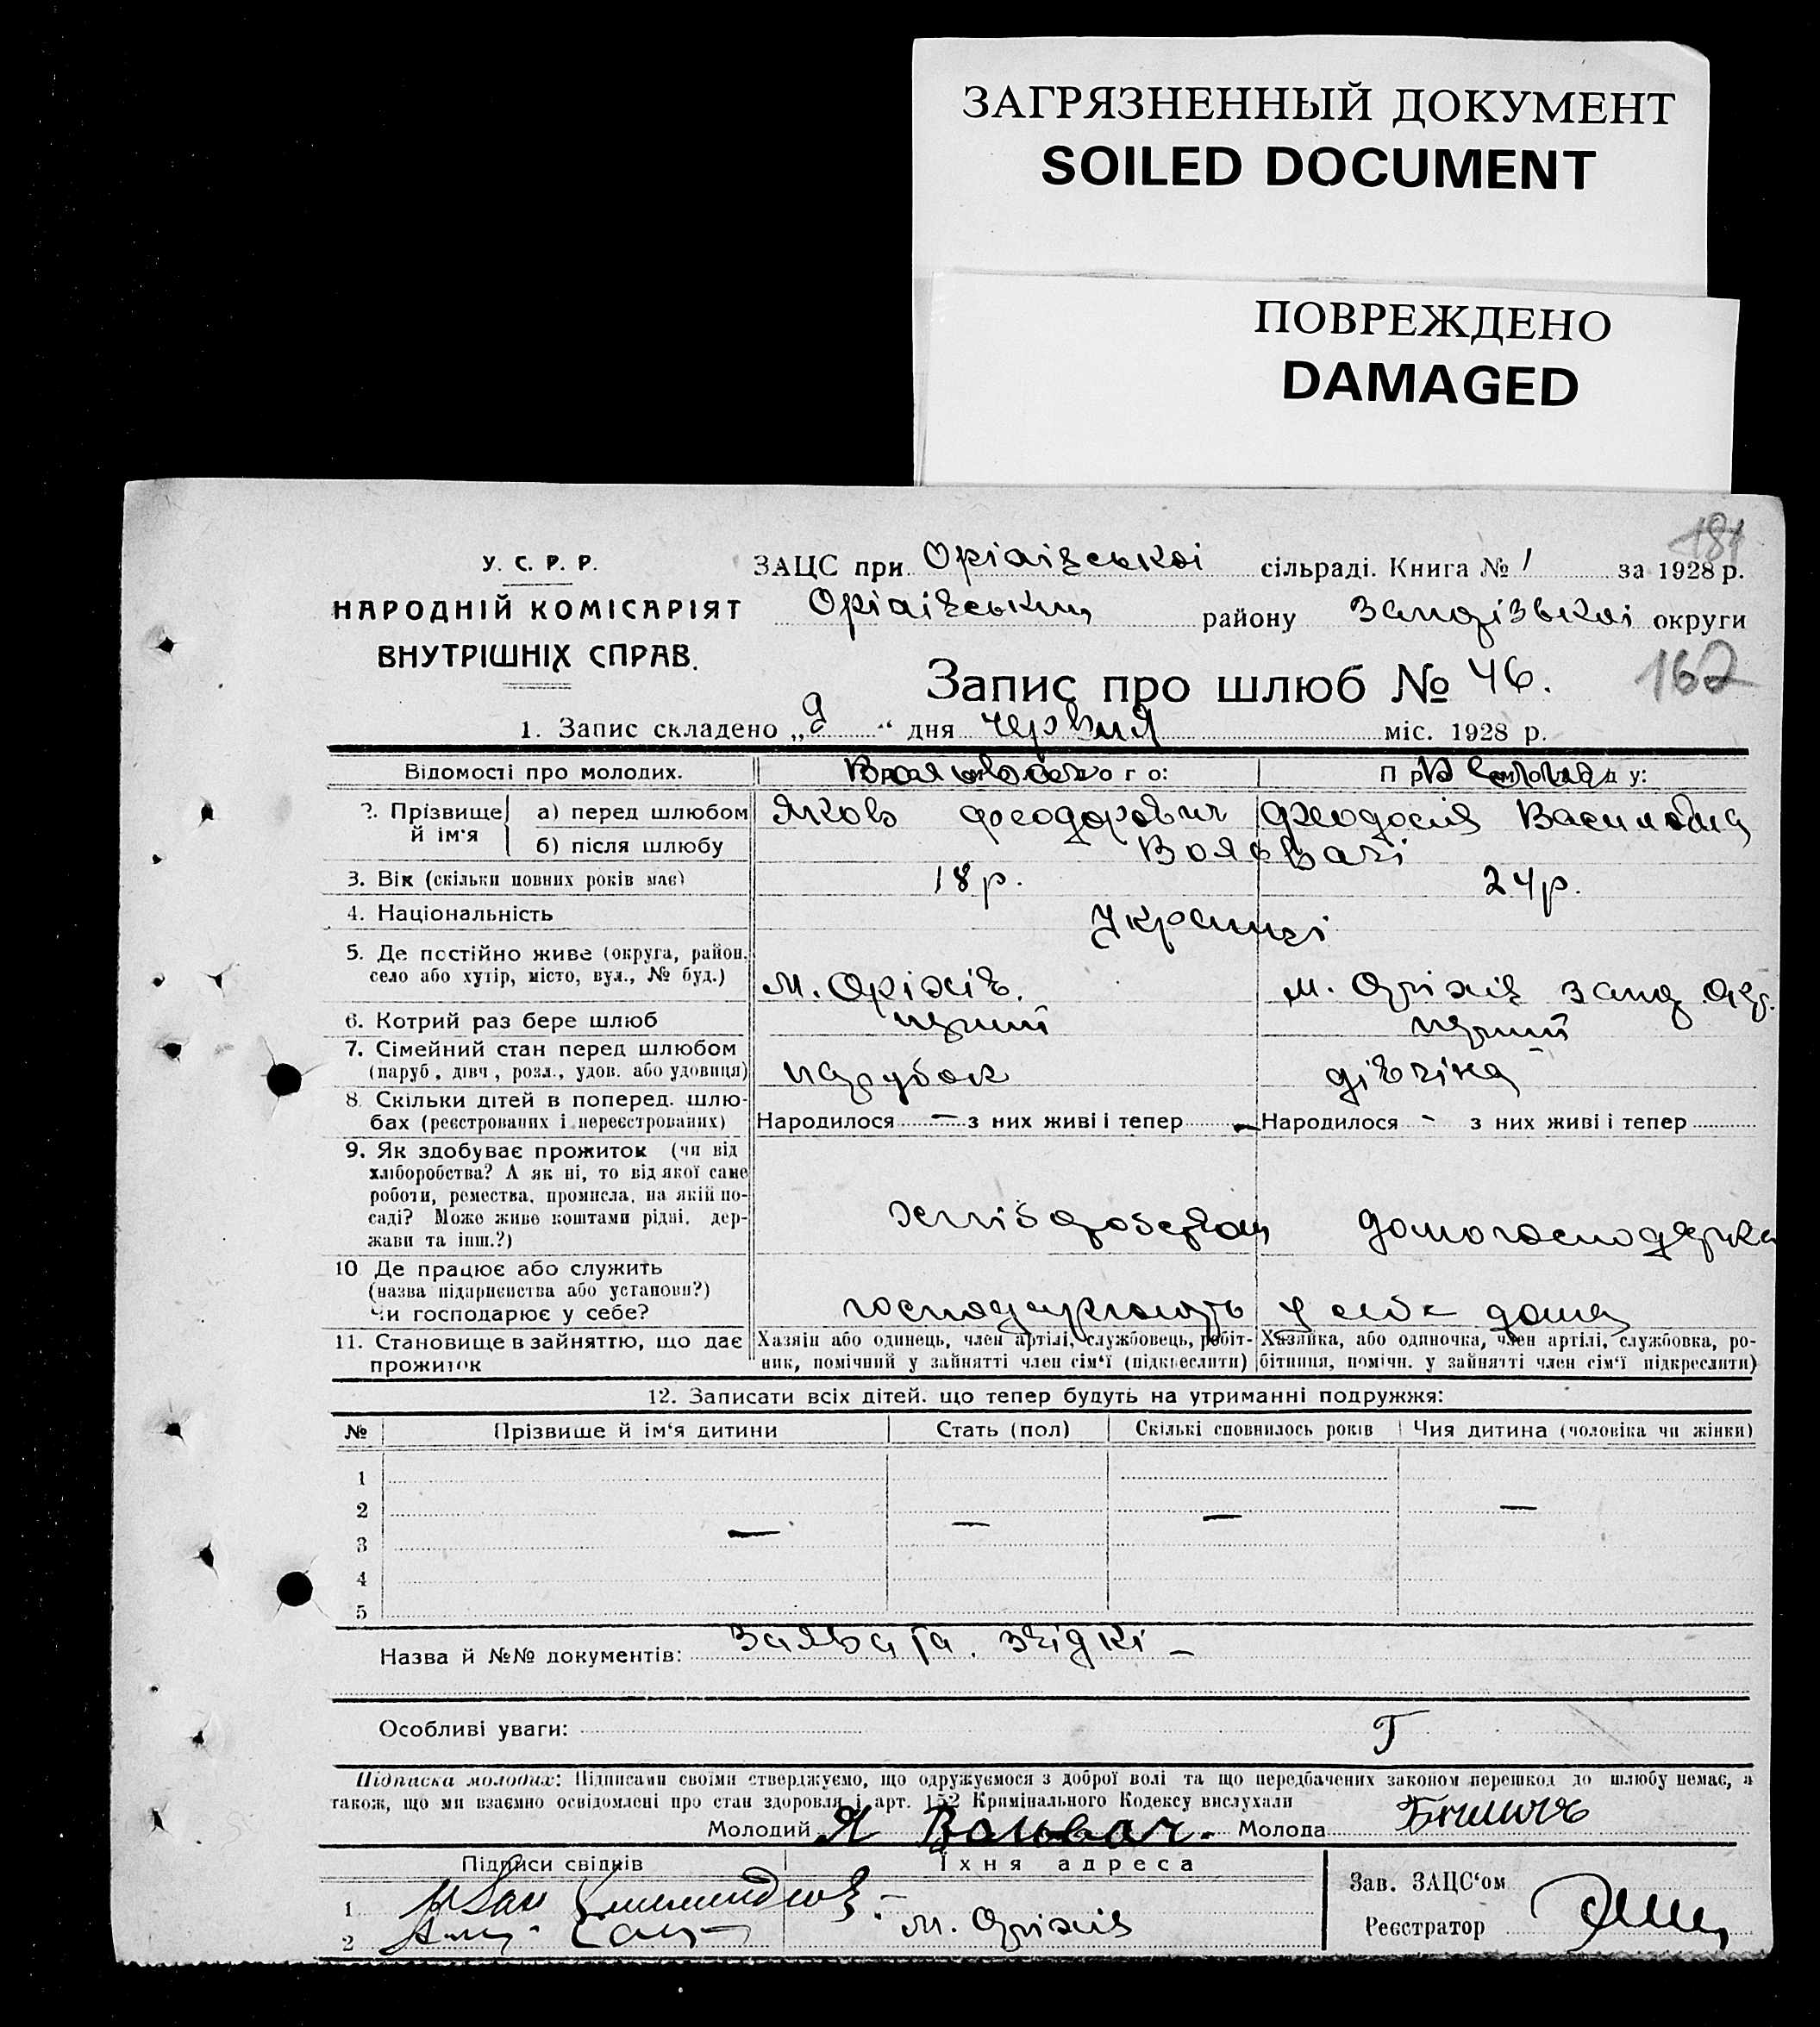 ЗАГРЯЗНЕННЫЙ ДОКУМЕНТ
SOILED DOCUMENT
ПОВРЕЖДЕНО
DAMAGED
181
У. С. Р. Р.
НАРОДНІЙ КОМІСАРІЯТ
ВНУТРІШНІХ СПРАВ.
ЗАЦС при Оріхівської сільраді. Книга № 1 за 1928 р.
району округи
162
Запис про шлюб № 46.
1. Запис складено „9“ дня червня міс. 1928 р.
Відомості про молодих.
2. Прізвище й ім'я
а) перед шлюбом Яков Феодорович Феодосія
б) після шлюбу
3. Вік (скільки повних років має) 18 р. 24 р.
4. Національність Українці
5. Де постійно живе (округа, район,
село або хутір, місто, вул., № буд.) м. Оріхів. м. Оріхів
6. Котрий раз бере шлюб перший перший
7. Сімейний стан перед шлюбом
(паруб, дівч, розл., удов. або удовиця) парубок дівчіна
8. Скільки дітей в поперед. шлю-
бах (реєстрованих і нереєстрованих) Народилося — з них живі і тепер — Народилося - з них живі і тепер
9. Як здобуває прожиток (чи від
хліборобства? А як ні, то від якої саме
роботи, ремества, промисла, на якій по-
саді? Може живе коштами рідні, дер-
жави та інш.?)
домогосподарка
10 Де працює або служить
(назва підприємства або установи?)
Чи господарює у себе? господарюють у себе дома
11. Становище в зайняттю, що дає
прожиток
Хазяїн або одинець, член артілі, службовець, робіт-
ник, помічний у зайнятті член сім'ї (підкреслити)
Хазяйка, або одиночка, член артілі, службовка, ро-
бітниця, помічн. у зайнятті член сім'ї підкреслити)
12. Записати всіх дітей. що тепер будуть на утриманні подружжя:
№ Прізвище й ім'я дитини Стать (пол) Скількі сповнилось років Чия дитина (чоловіка чи жінки)
1
2 —
3 — — —
4
5
Назва й №№ документів: Заява та. звідкі —
Особливі уваги:
Підписка молодих: Підписами своїми стверджуємо, що одружуємося з доброї волі та що передбачених законом перешкод до шлюбу немає, а
також, що ми взаємно освідомлені про стан здоровля і арт. 152 Кримінального Кодексу вислухали
Молодий Я Молода
Підписи свідків Їхня адреса
Зав. ЗАЦС'ом
1 Иван
2 м. Оріхів
Реєстратор